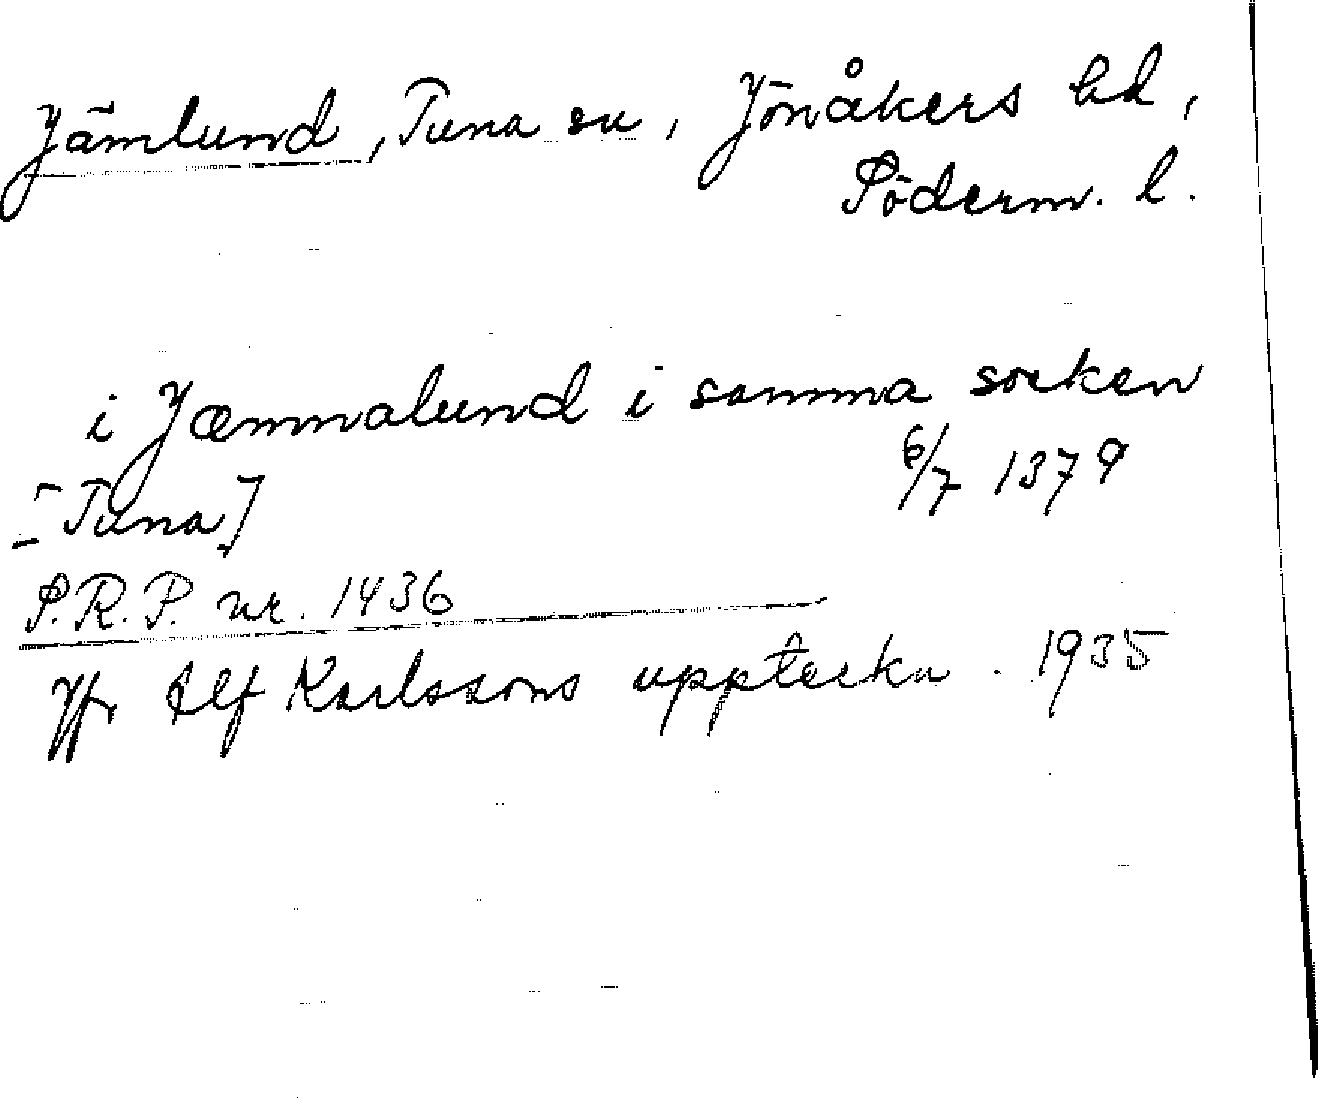 Jämlund, Tuna sn, Jönåkers hd,
Söderm. l.
i Jæmmalund i samma socken
[Tuna] 6/7 1379
S.R.P. nr. 1436
Jfr Alf Karlssons uppteckn. 1935